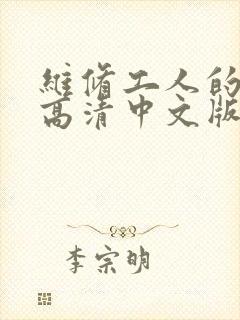 維修工人的
高清中文版
李宗明